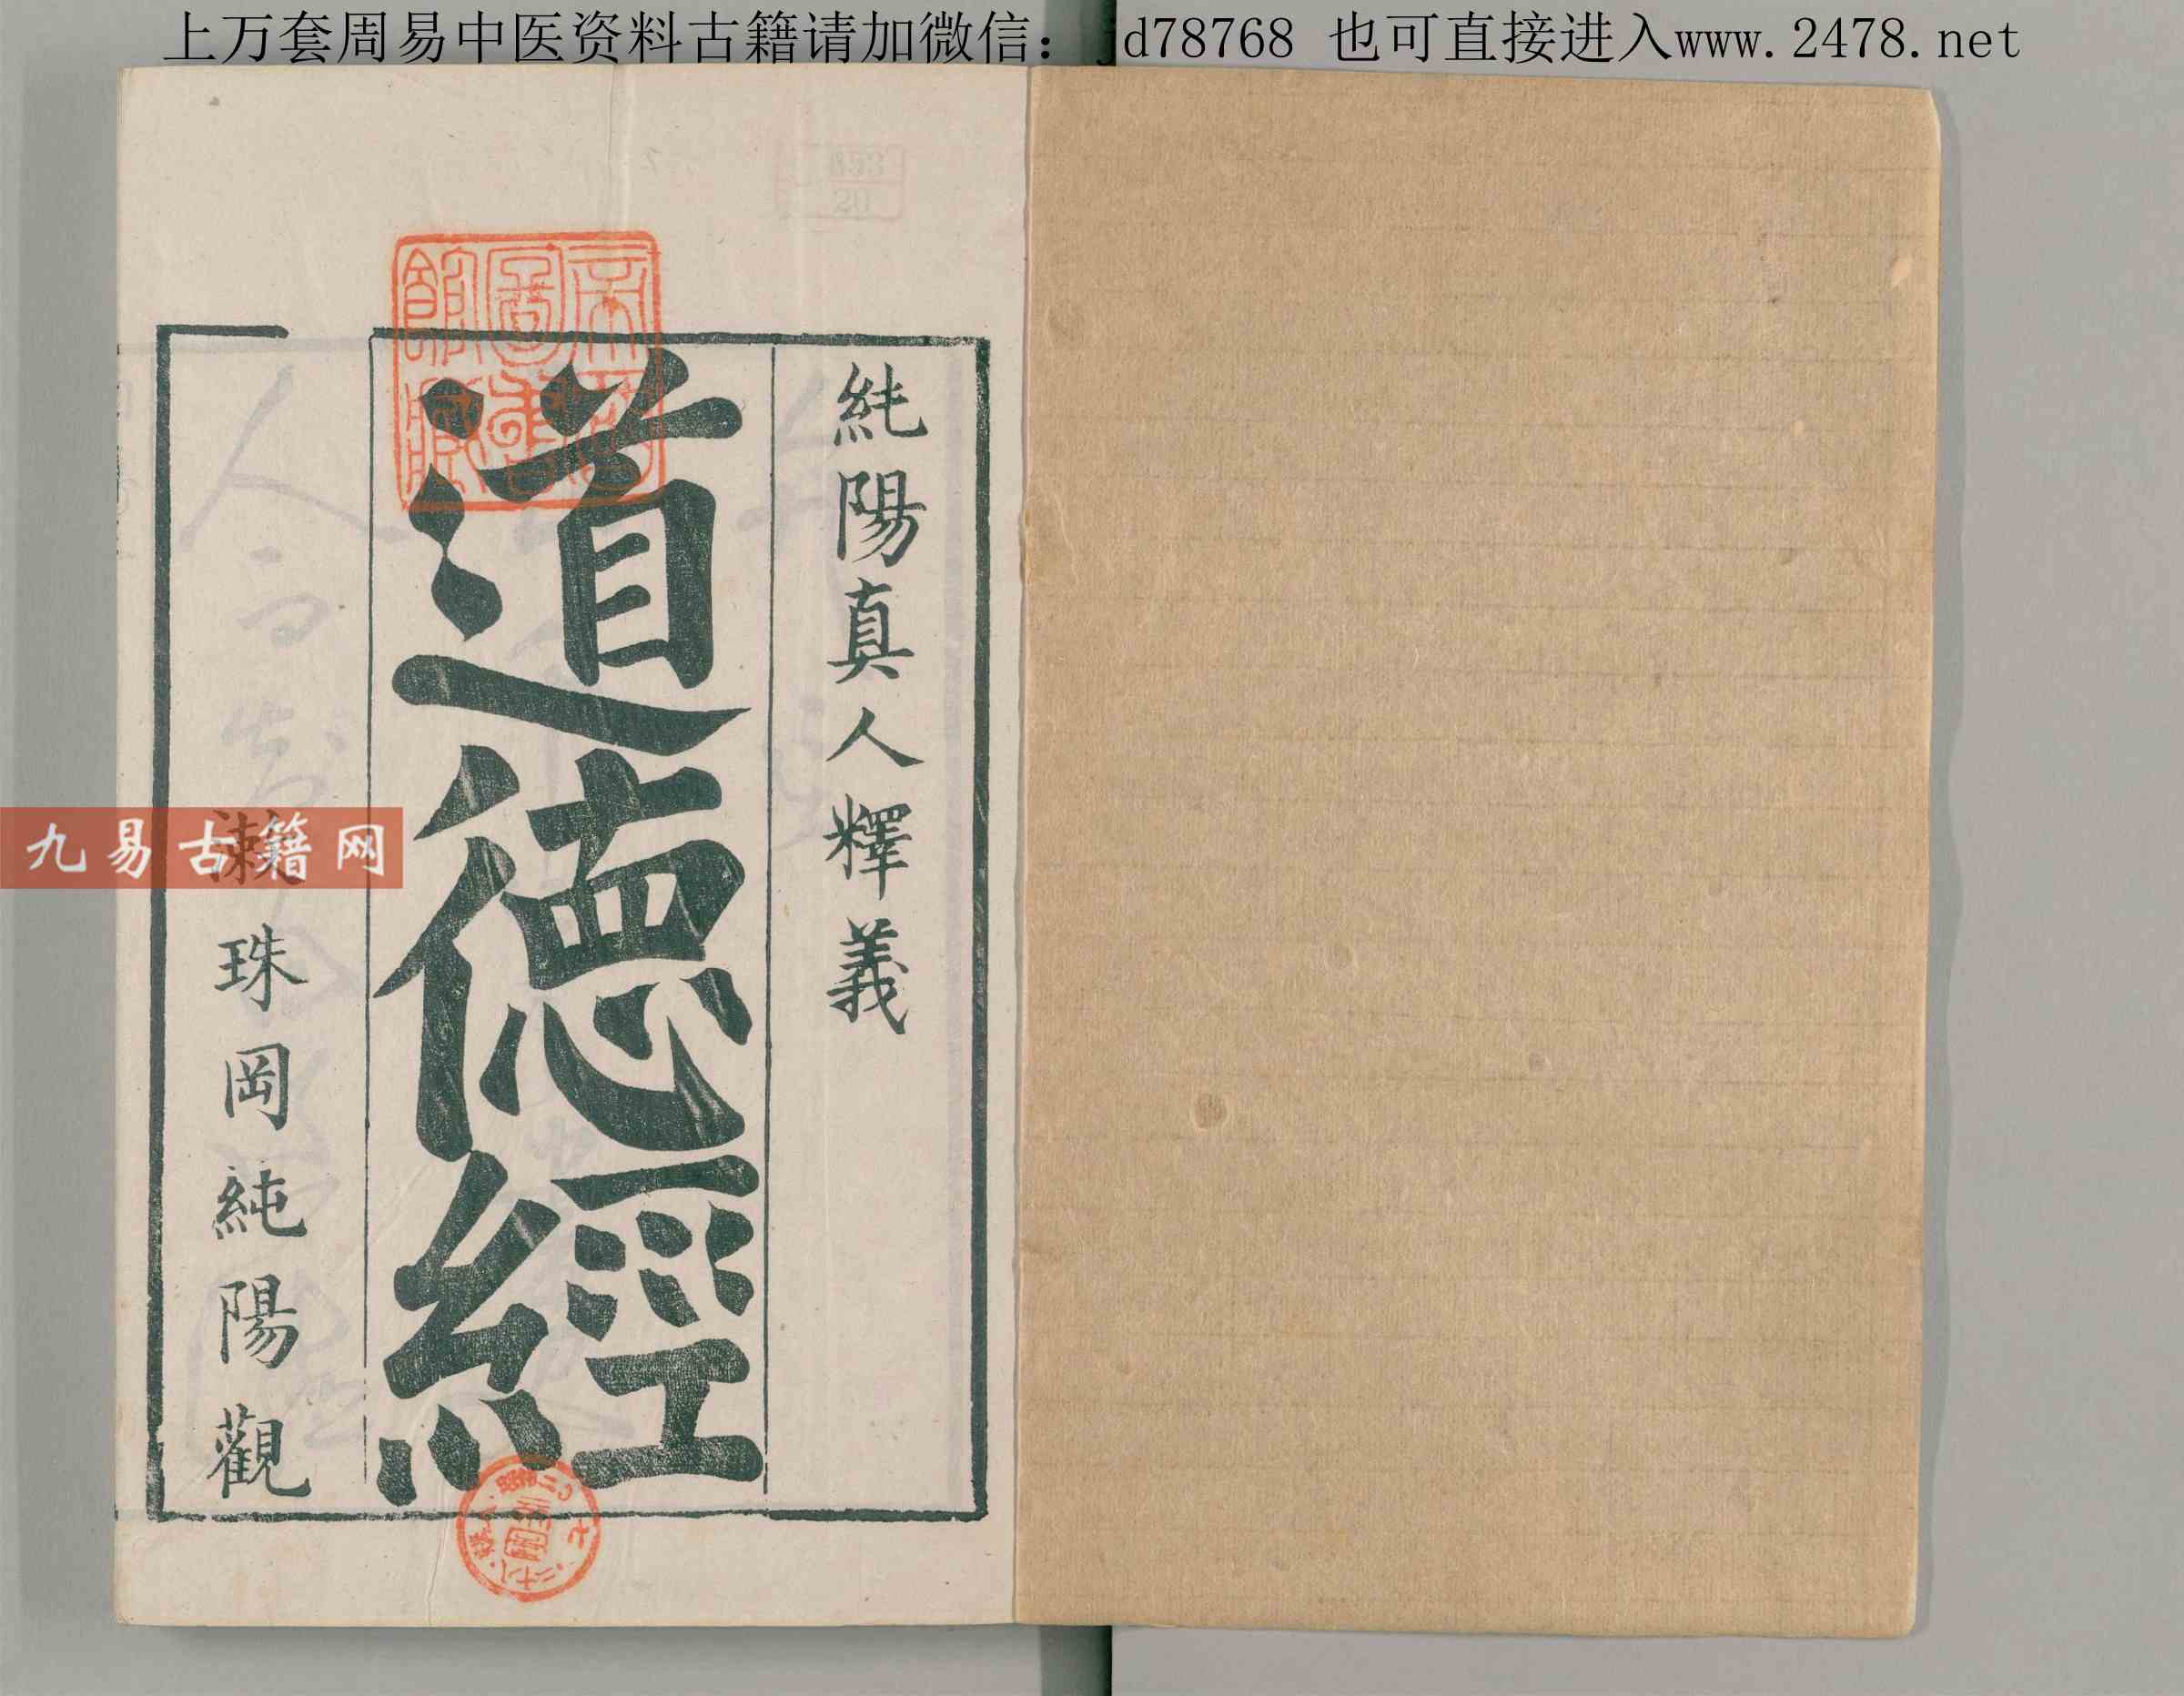 上万套周易中医资料古籍请加微信：jd78768 也可直接进入www.2478.net
純陽真人釋義
道德經
漱珠岡純陽觀
九易古籍网
帝國圖書館藏